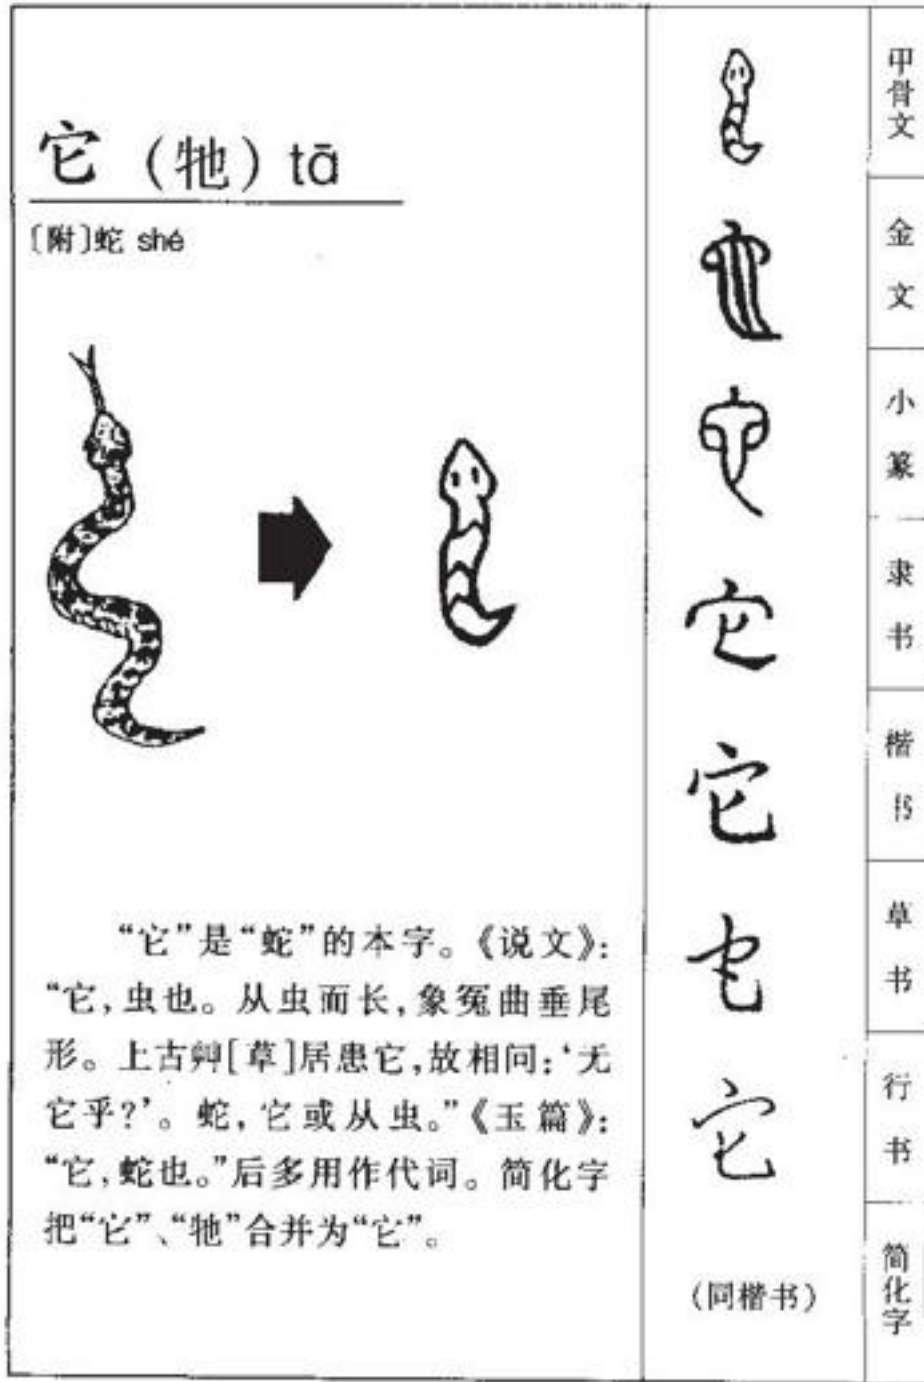 它（牠）tā
〔附〕蛇 shé
“它”是“蛇”的本字。《说文》：
“它，虫也。从虫而长，象冤曲垂尾
形。上古艸[草]居患它，故相问：‘无
它乎？’。蛇，它或从虫。”《玉篇》：
“它，蛇也。”后多用作代词。简化字
把“它”、“牠”合并为“它”。
甲骨文
金文
小篆
它
隶书
它
楷书
它
草书
它
行书
（同楷书）
简化字